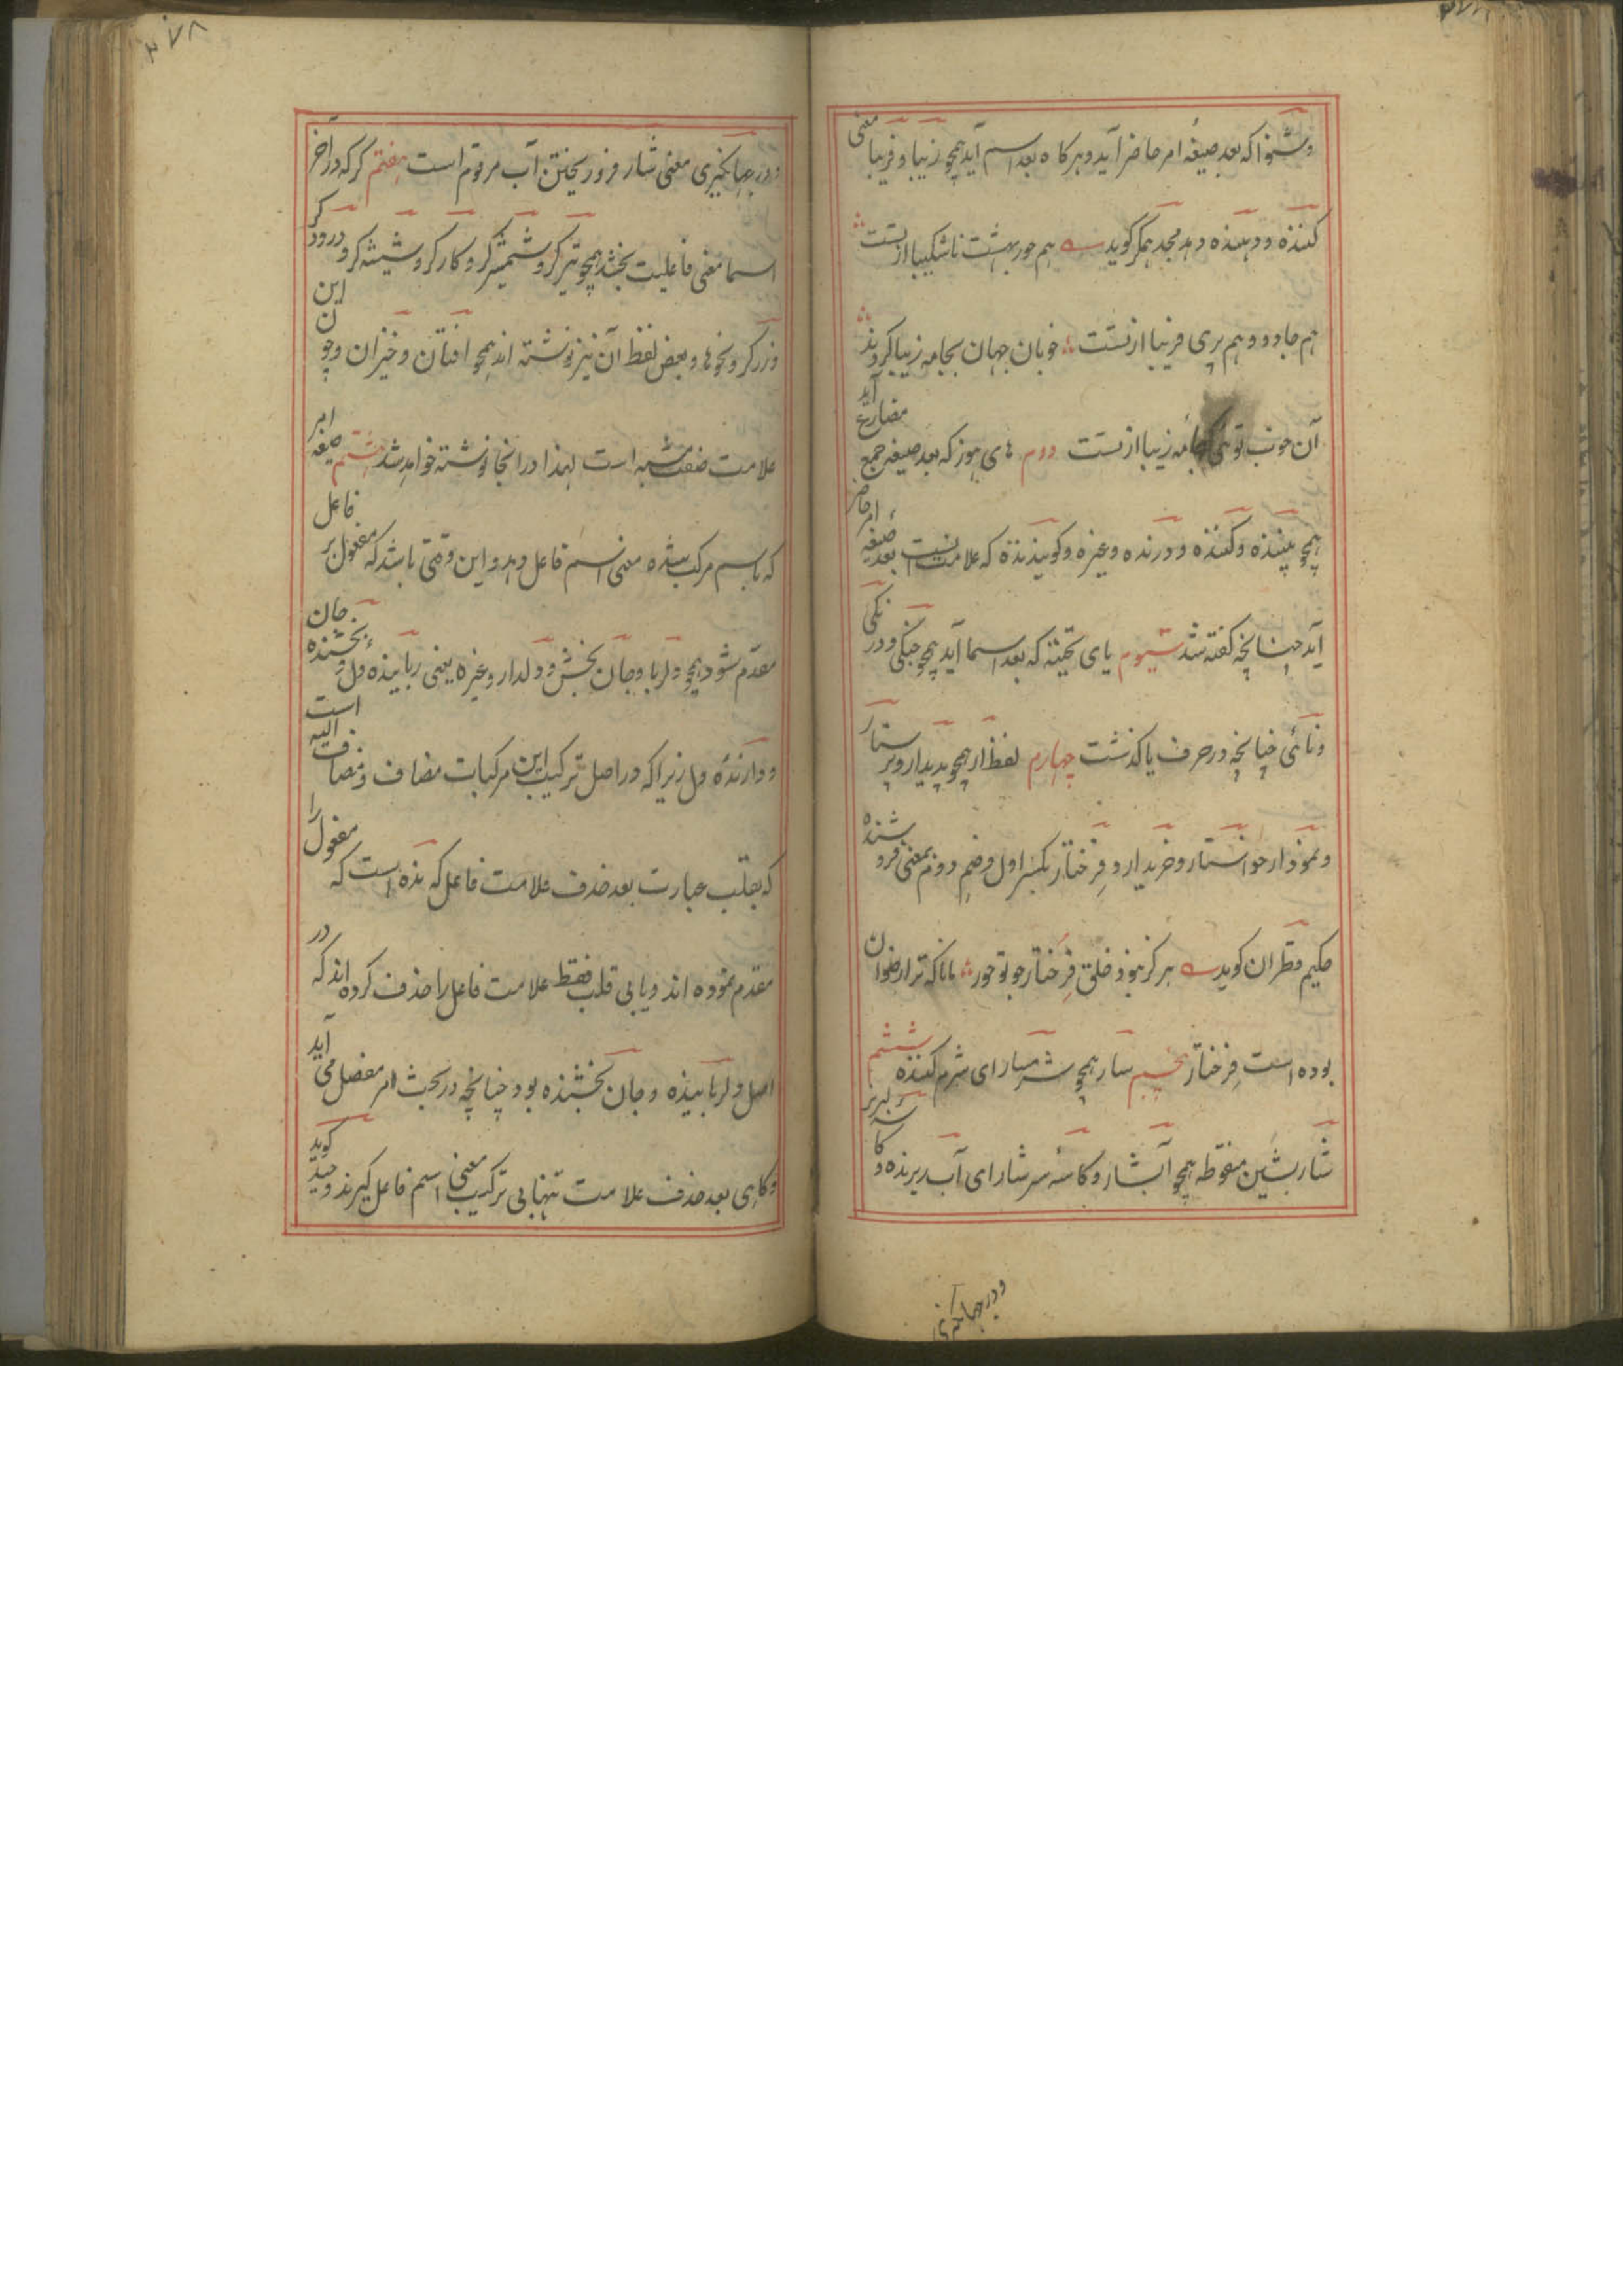 وشنوا که بعد صیغهٔ امر حاضر آید و هرکاه بعد اسم آید همچو زیبا و فریبا معنی
کننده و دهنده دهد مجد همکر کوید هم حور بهشت ناشکیبا از تست
هم جادو و هم پری فریبا از تست خوبان جهان بجامه زیبا کردند
آن خوب توئی که جامه زیبا از تست دوم های هوز که بعد صیغه جمع مضارع آید
همچو بیننده و کننده و درنده و غیره و کویند نده که علامت نیست بعد صیغه امر حاضر
آید چنانچه کفته شد سیوم یای تحتیه که بعد اسما آید همچو جنکی و درنکی
و نائی چنانچه در حرف یا کذشت چهارم لفظ ار همچو پدیدار و پرستار
و نمودار خواستار و خریدار و فرختار بکسر اول و ضم دوم بمعنی فروشنده
حکیم قطران کوید هرکز نبود خلق فرختار چو تو حور مانا که ترا رضوان
بوده است فرختار پنجم سار همچو شرمسار ای شرم کننده ششم
شار بشین منقوطه همچو آبشار و کاسهٔ سرشار ای آب ریزنده و کاسه لبریز
و در جهانکیری
و در جهانکیری معنی شار فرو ریختن آب مرقوم است هفتم کر که در آخر
اسما معنی فاعلیت بخشد همچو تیرکر و شمشیرکر و کارکر و شیشه کر و درودکر
و زرکر و نحوها و بعض لفظ آن نیز نوشته اند همچو افتان و خیزان و چون این
علامت صفت مشبه است لهذا در انجا نوشته خواهد شد هشتم صیغه امر
که باسم مرکب شده معنی اسم فاعل دهد و این وقتی باشد که مفعول بر فاعل
مقدم شود همچو دلربا و جان بخش و دلدار و غیره یعنی رباینده دل و بخشندهٔ جان
و دارندهٔ دل زیرا که در اصل ترکیب این مرکبات مضاف و مضاف الیه است
که بقلب عبارت بعد حذف علامت فاعل که نده است که مفعول را
مقدم نموده اند و یا بی قلب فقط علامت فاعل را حذف کرده اند که در
اصل دلرباینده و جان بخشنده بود چنانچه در بحث امر مفصل می آید
و کاهی بعد حذف علامت تنهایی ترکیب معنی اسم فاعل کیرند کوید